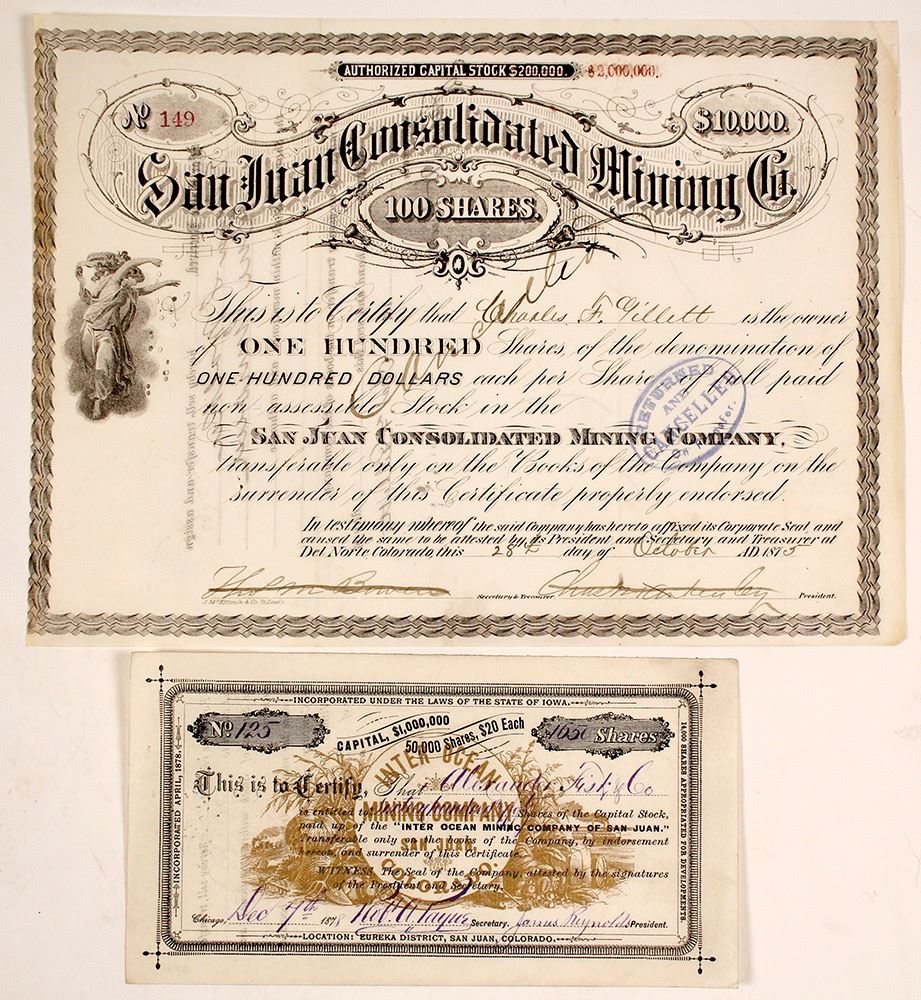 AUTHORIZED CAPITAL STOCK $200,000. $2,000,000.
No 149
$10,000.
San Juan Consolidated Mining Co.
100 SHARES.
This is to Certify that Charles F. Gillett is the owner
of ONE HUNDRED Shares, of the denomination of
ONE HUNDRED DOLLARS each per Share of full paid
non-assessible Stock in the
SAN JUAN CONSOLIDATED MINING COMPANY,
transferable only on the Books of the Company on the
surrender of this Certificate properly endorsed.
Cancelled
RETURNED AND CANCELLED
In testimony whereof the said Company has hereto affixed its Corporate Seal and
caused the same to be attested by its President and Secretary and Treasurer at
Del Norte Colorado, this 28th day of October AD 1875
Thos M Bowen Secretary & Treasurer President.
J. McKittrick & Co. St. Louis
INCORPORATED UNDER THE LAWS OF THE STATE OF IOWA.
No 125
CAPITAL, $1,000,000
50,000 Shares, $20 Each
1650 Shares
INCORPORATED APRIL, 1878.
14,000 SHARES APPROPRIATED FOR DEVELOPMENTS
This is to Certify, That Alexander Fisk & Co
is entitled to Shares of the Capital Stock,
paid up of the "INTER OCEAN MINING COMPANY OF SAN JUAN."
Transferable only on the books of the Company, by indorsement
hereon, and surrender of this Certificate.
WITNESS The Seal of the Company, attested by the signatures
of the President and Secretary.
INTER OCEAN
MINING COMPANY
SAN JUAN
COLORADO
Chicago, Dec 7th 1878 Payne Secretary. James Reynolds President.
LOCATION: EUREKA DISTRICT, SAN JUAN, COLORADO.